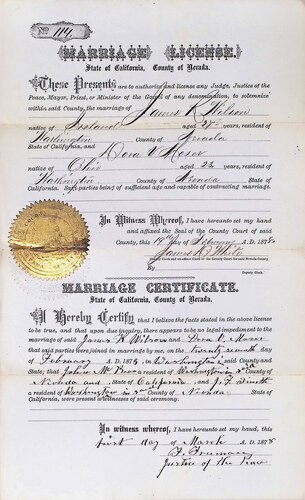 No 114
MARRIAGE LICENSE.
State of California, County of Nevada.
These Present are to authorize and license any Judge, Justice of the
Peace, Mayor, Priest, or Minister of the Gospel of any denomination, to solemnize
within said County, the marriage of James K Wilson
native of aged 27 years, resident of
Washington County of Nevada
State of California, and Dora V Moser
native of Ohio aged 22 years, resident of
Washington County of Nevada State of
California. Said parties being of sufficient age and capable of contracting marriage.
In Witness Whereof, I have hereunto set my hand
and affixed the Seal of the County Court of said
County, this day of February A.D. 187
James D White
Clerk and ex-officio Clerk of the County Court for said Nevada County.
By
Deputy Clerk
MARRIAGE CERTIFICATE.
State of California, County of Nevada.
I Hereby Certify that I believe the facts stated in the above license
to be true, and that upon due inquiry, there appears to be no legal impediment to the
marriage of said James K Wilson and Dora V. Moser
that said parties were joined in marriage by me, on the Twenty seventh day of
February A.D. 187 in Washington said
State; that John Mc resident of Washington in said
Nevada and State of California, and J. F.
a resident of Washington in County of Nevada State of
California, were present as witnesses of said ceremony.
In witness whereof, I have hereunto set my hand, this
first day of March A.D. 187
Freeman
Justice of the Peace